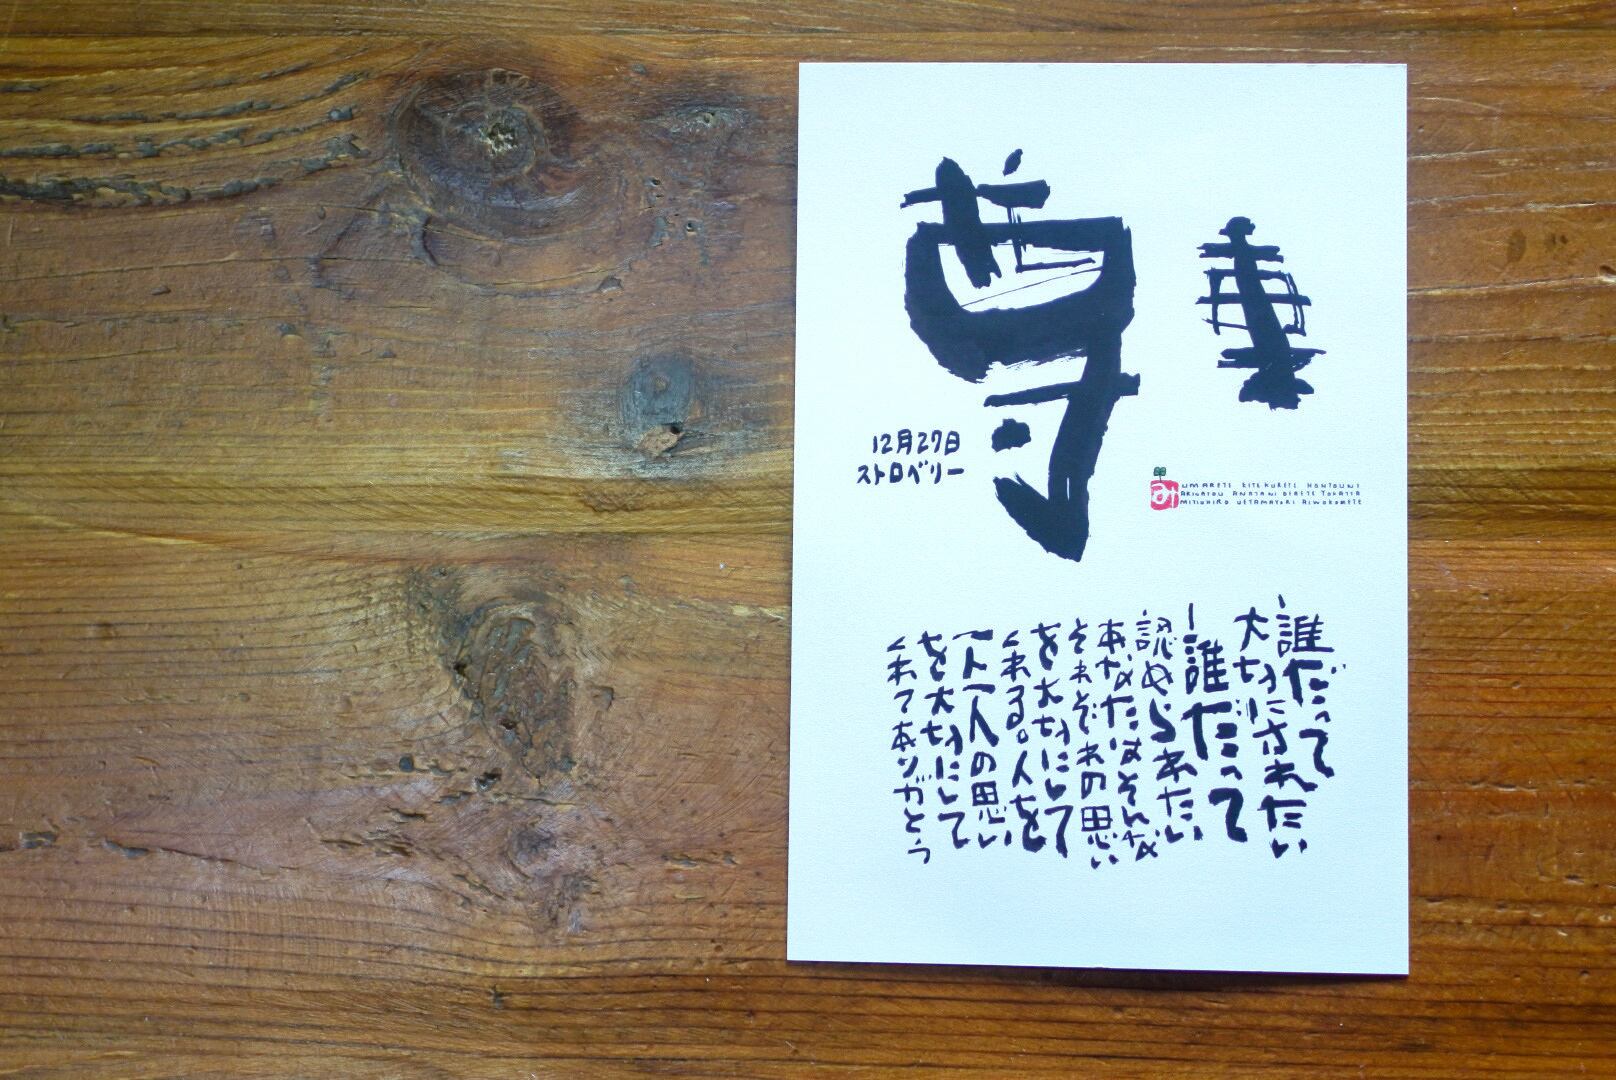 尊重
12月27日
ストロベリー
み
UMARETE KITEKURETE HONTOUNI
ARIGATOU ANATANI DEAETE YOKATTA
MITIHIRO UETAMAYORI AIWOKOMETE
誰だって
大切にされたい
誰だって
認められたい
あなたはそんな
それぞれの思い
を大切にして
くれる。人を
一人一人の思い
を大切にして
くれてありがとう